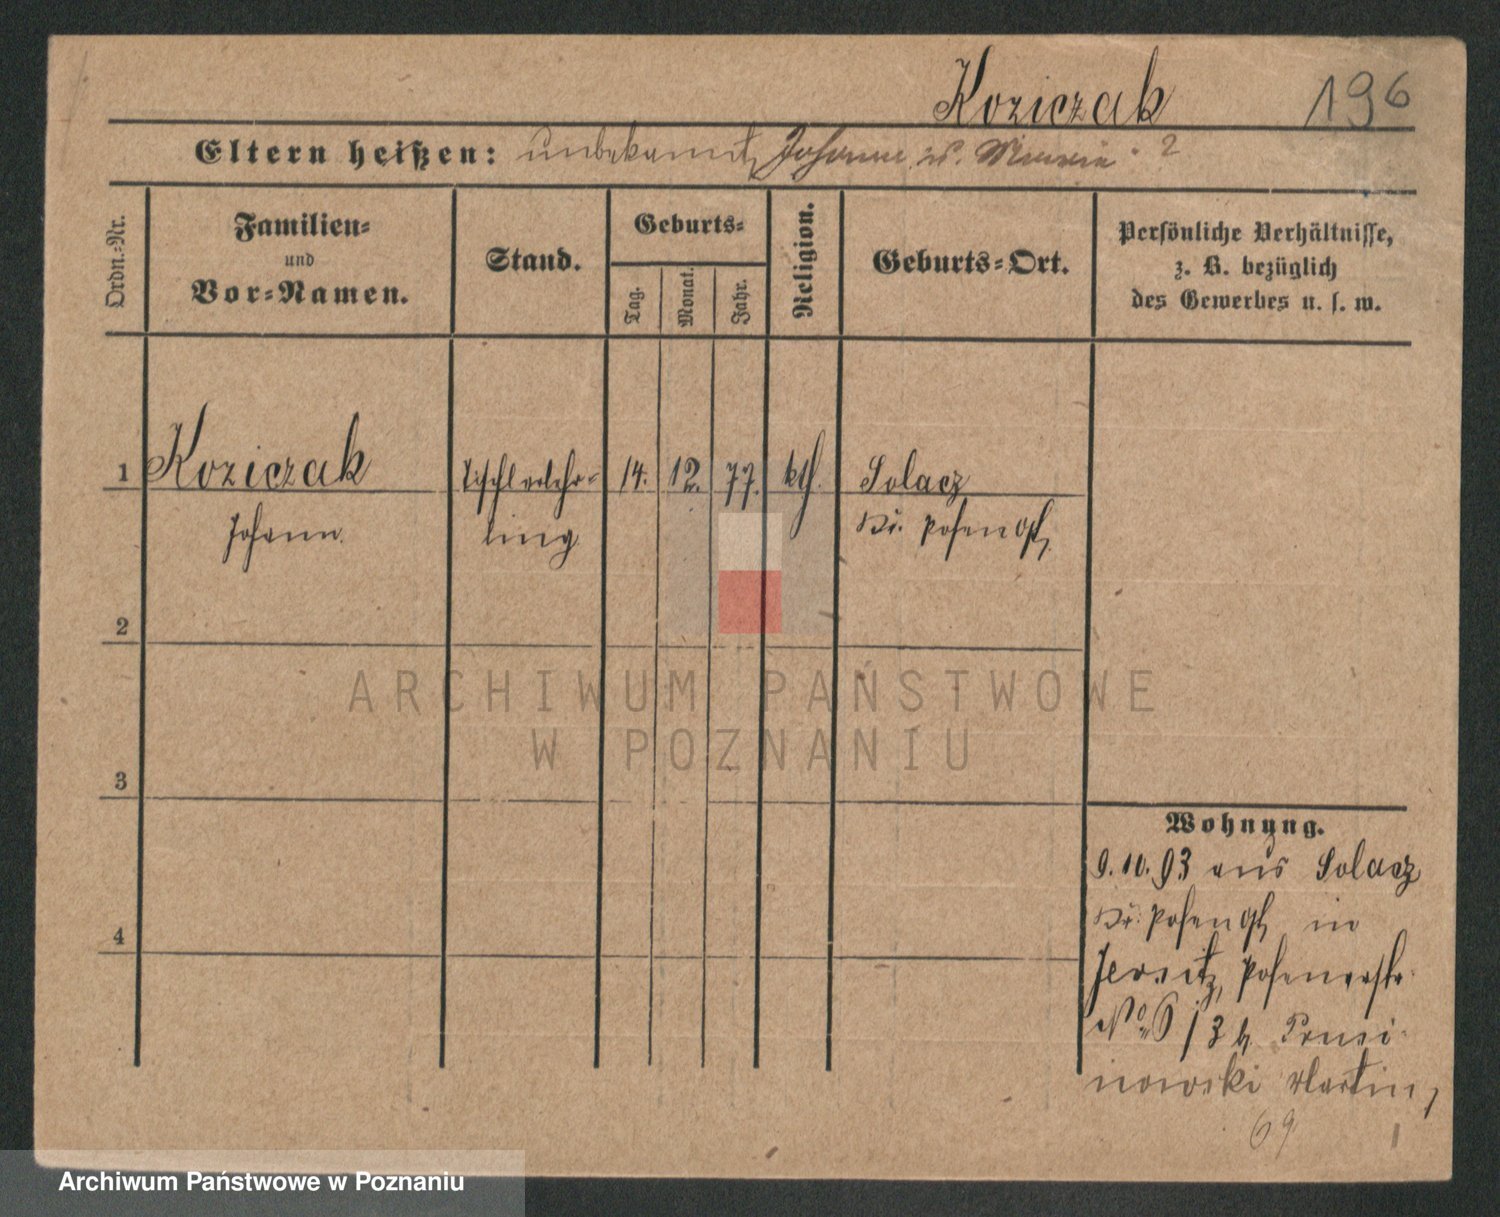 Koziczak 196
Eltern heißen: unbekannt, Johann u. Maria ?
Ordn.-Nr.
Familien-
und
Vor-Namen.
Stand.
Geburts-
Tag.
Monat.
Jahr.
Religion.
Geburts-Ort.
Persönliche Verhältnisse,
z. B. bezüglich
des Gewerbes u. s. w.
1 Koziczak Tischlerlehr- 14. 12. 77. kth. Solacz
Johann ling Kr. Posen Ost,
2
3
4
Wohnung.
9. 10. 93 aus Solacz
Kr. Posen Ost, in
Jersitz, Posenerstr.
No 6 /3 b. Prusi-
nowski Martin,
69
ARCHIWUM PAŃSTWOWE
W POZNANIU
Archiwum Państwowe w Poznaniu